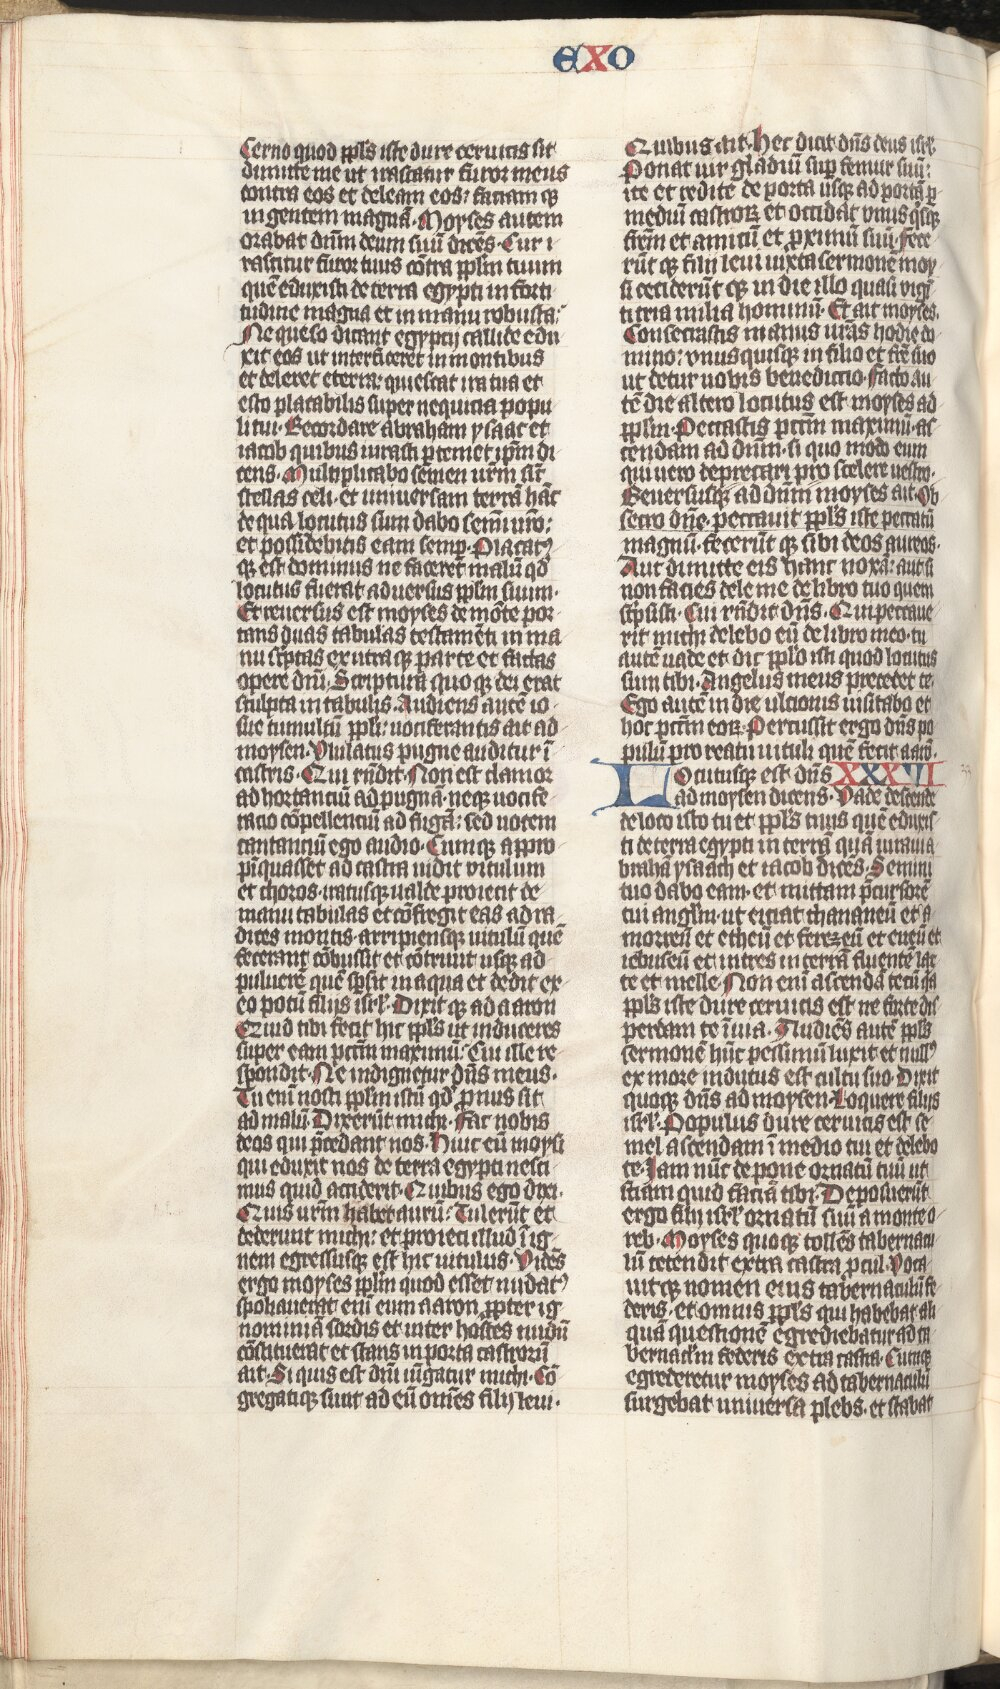 EXO
Cerno quod ppl̄s iste dure ceruicis sit
dimitte me ut irascatur furor meus
contra eos et deleam eos: faciam q̧
in gentem magnā. Moyses autem
orabat dn̄m deum suū dicēs. Cur i
rascitur furor tuus cōtra ppl̄m tuum
quē eduxisti de terra egypti in forti
tudine magna et in manu robusta:
Ne queso dicant egyptij callide edu
xit eos ut interficeret in montibus
et deleret e terra: quiescat ira tua et
esto placabilis super nequicia popu
li tui. Recordare abraham ysaac et
iacob quibus iurasti p temet ip̄m di
cens. Multiplicabo semen ur̄m sic̄
stellas celi. et uniuersam terrā hāc
de qua locutus sum dabo semī uro:
et possidebitis eam semp. Placat9
q̧ est dominus ne faceret malū qd̄
locutus fuerat aduersus ppl̄m suum.
Et reuersus est moyses de mōte por
tans duas tabulas testamēti in ma
nu scp̄tas ex utraq̧ parte et factas
opere dn̄i. Scriptura quoq̧ dei erat
sculpta in tabulis. Audiens autē io
sue tumultū ppl̄i uociferantis ait ad
moysen. Vlulatus pugne auditur ī
castris. Qui rn̄dit. Non est clamor
ad hortanciū ad pugnā. neq̧ uocife
racio cōpellenciū ad fugā: sed uocem
cantanciū ego audio. Cumq̧ appro
pīquasset ad castra uidit vitulum
et choros. iratusq̧ ualde proiecit de
manu tabulas et cōfregit eas ad ra
dices montis. arripiensq̧ uitulū quē
fecerant cōbussit et cōtriuit usq̧ ad
puluerē quē sp̄sit in aqua et dedit ex
eo potū filijs isrl̄. Dixit q̧ ad aaron
Quid tibi fecit hic ppl̄s ut induceres
super eam pc̄tm maximū: Cui ille re
spondit. Ne indignetur dn̄s meus.
Tu eni nosti ppl̄m istū qd̄ pnus sit
ad malū. Dixerūt michi. Fac nobis
deos qui p̄cedant nos. Huic eni moysi
qui eduxit nos de terra egypti nesci
mus quid acciderit. Quibus ego dixi.
Quis ur̄m habet aurū: Tulerūt et
dederunt michi: et proieci illud ī ig
nem egressusq̧ est hic uitulus. Vidēs
ergo moyses ppl̄m quod esset nudat9
spoliauerat eni eum aaron ppter ig
nominiā sordis et inter hostes nudū
cōstituerat et stans in porta castrorū
ait. Si quis est dn̄i iūgatur michi. Cō
gregatiq̧ sunt ad eū omēs filij leui.
Quibus ait. Hec dicit dn̄s deus isrl̄.
Ponat uir gladiū sup femur suū:
ite et redite de porta usq̧ ad portā p
mediū castroꝝ et occidat vnus q̄sq̧
fr̄em et amicū et pximū suū. fece
rūt q̧ filij leui iuxta sermonē moy
si ceciderūt q̧ in die illo quasi vigī
ti tria milia hominū. Et ait moyses.
Consecrastis manus ur̄as hodie do
mino: vnusquisq̧ in filio et fr̄e suo
ut detur uobis benedictio. Facto au
tē die altero locutus est moyses ad
ppl̄m. Peccastis pc̄tm maximū. as
cendam ad dn̄m. si quo modo eum
quiuero deprecari pro scelere uestro.
Reuersusq̧ ad dn̄m moyses ait. Ob
secro dn̄e. peccauit ppl̄s iste peccatū
magnū. fecerūt q̧ sibi deos aureos.
Aut dimitte eis hanc noxā: aut si
non facies dele me de libro tuo quem
scp̄sisti. Cui rn̄dit dn̄s. Qui peccaue
rit michi delebo eū de libro meo. tu
autē uade et duc ppl̄o isti quod locutus
sum tibi. Angelus meus precedet te.
Ego autē in die ulcionis uisitabo et
hoc pc̄tm eoꝝ. Percussit ergo dn̄s po
pulū pro reatu uituli quē fecit aarō.
Locutusq̧ est dn̄s XXXIII
ad moysen dicens. Vade descende
de loco isto tu et ppl̄s tuus quē eduxis
ti de terra egypti in terrā quā iuraui a
braham ysaach et iacob dicēs. Semini
tuo dabo eam. et mittam p̄cursorē
tui angl̄m. ut eiciat chananeū et a
morreū et etheū et ferezeū et eueū et
iebuseū et intres in terrā fluentē lac
te et melle. Non eni ascendā tecū q̄a
ppl̄s iste dure ceruicis est ne forte dis
perdam te ī uia. Audiēs autē ppl̄s
sermonē hūc pessimū luxit et null9
ex more indutus est cultu suo. Dixit
quoq̧ dn̄s ad moysen. Loquere filijs
isrl̄. Populus dure ceruicis est se
mel ascendam ī medio tui et delebo
te. Iam nūc depone ornatū tuū ut
sciam quid faciā tibi. Deposuerūt
ergo filij isrl̄ ornatū suū a monte o
reb. Moyses quoq̧ tollēs tabernacu
lū tetendit extra castra pcul. Voca
uitq̧ nomen eius tabernaculū fe
deris. et omnis ppl̄s qui habebat ali
quā questionē egrediebatur ad ta
bernacl̄m federis extra castra. Cumq̧
egrederetur moyses ad tabernaculū
surgebat uniuersa plebs. et stabat